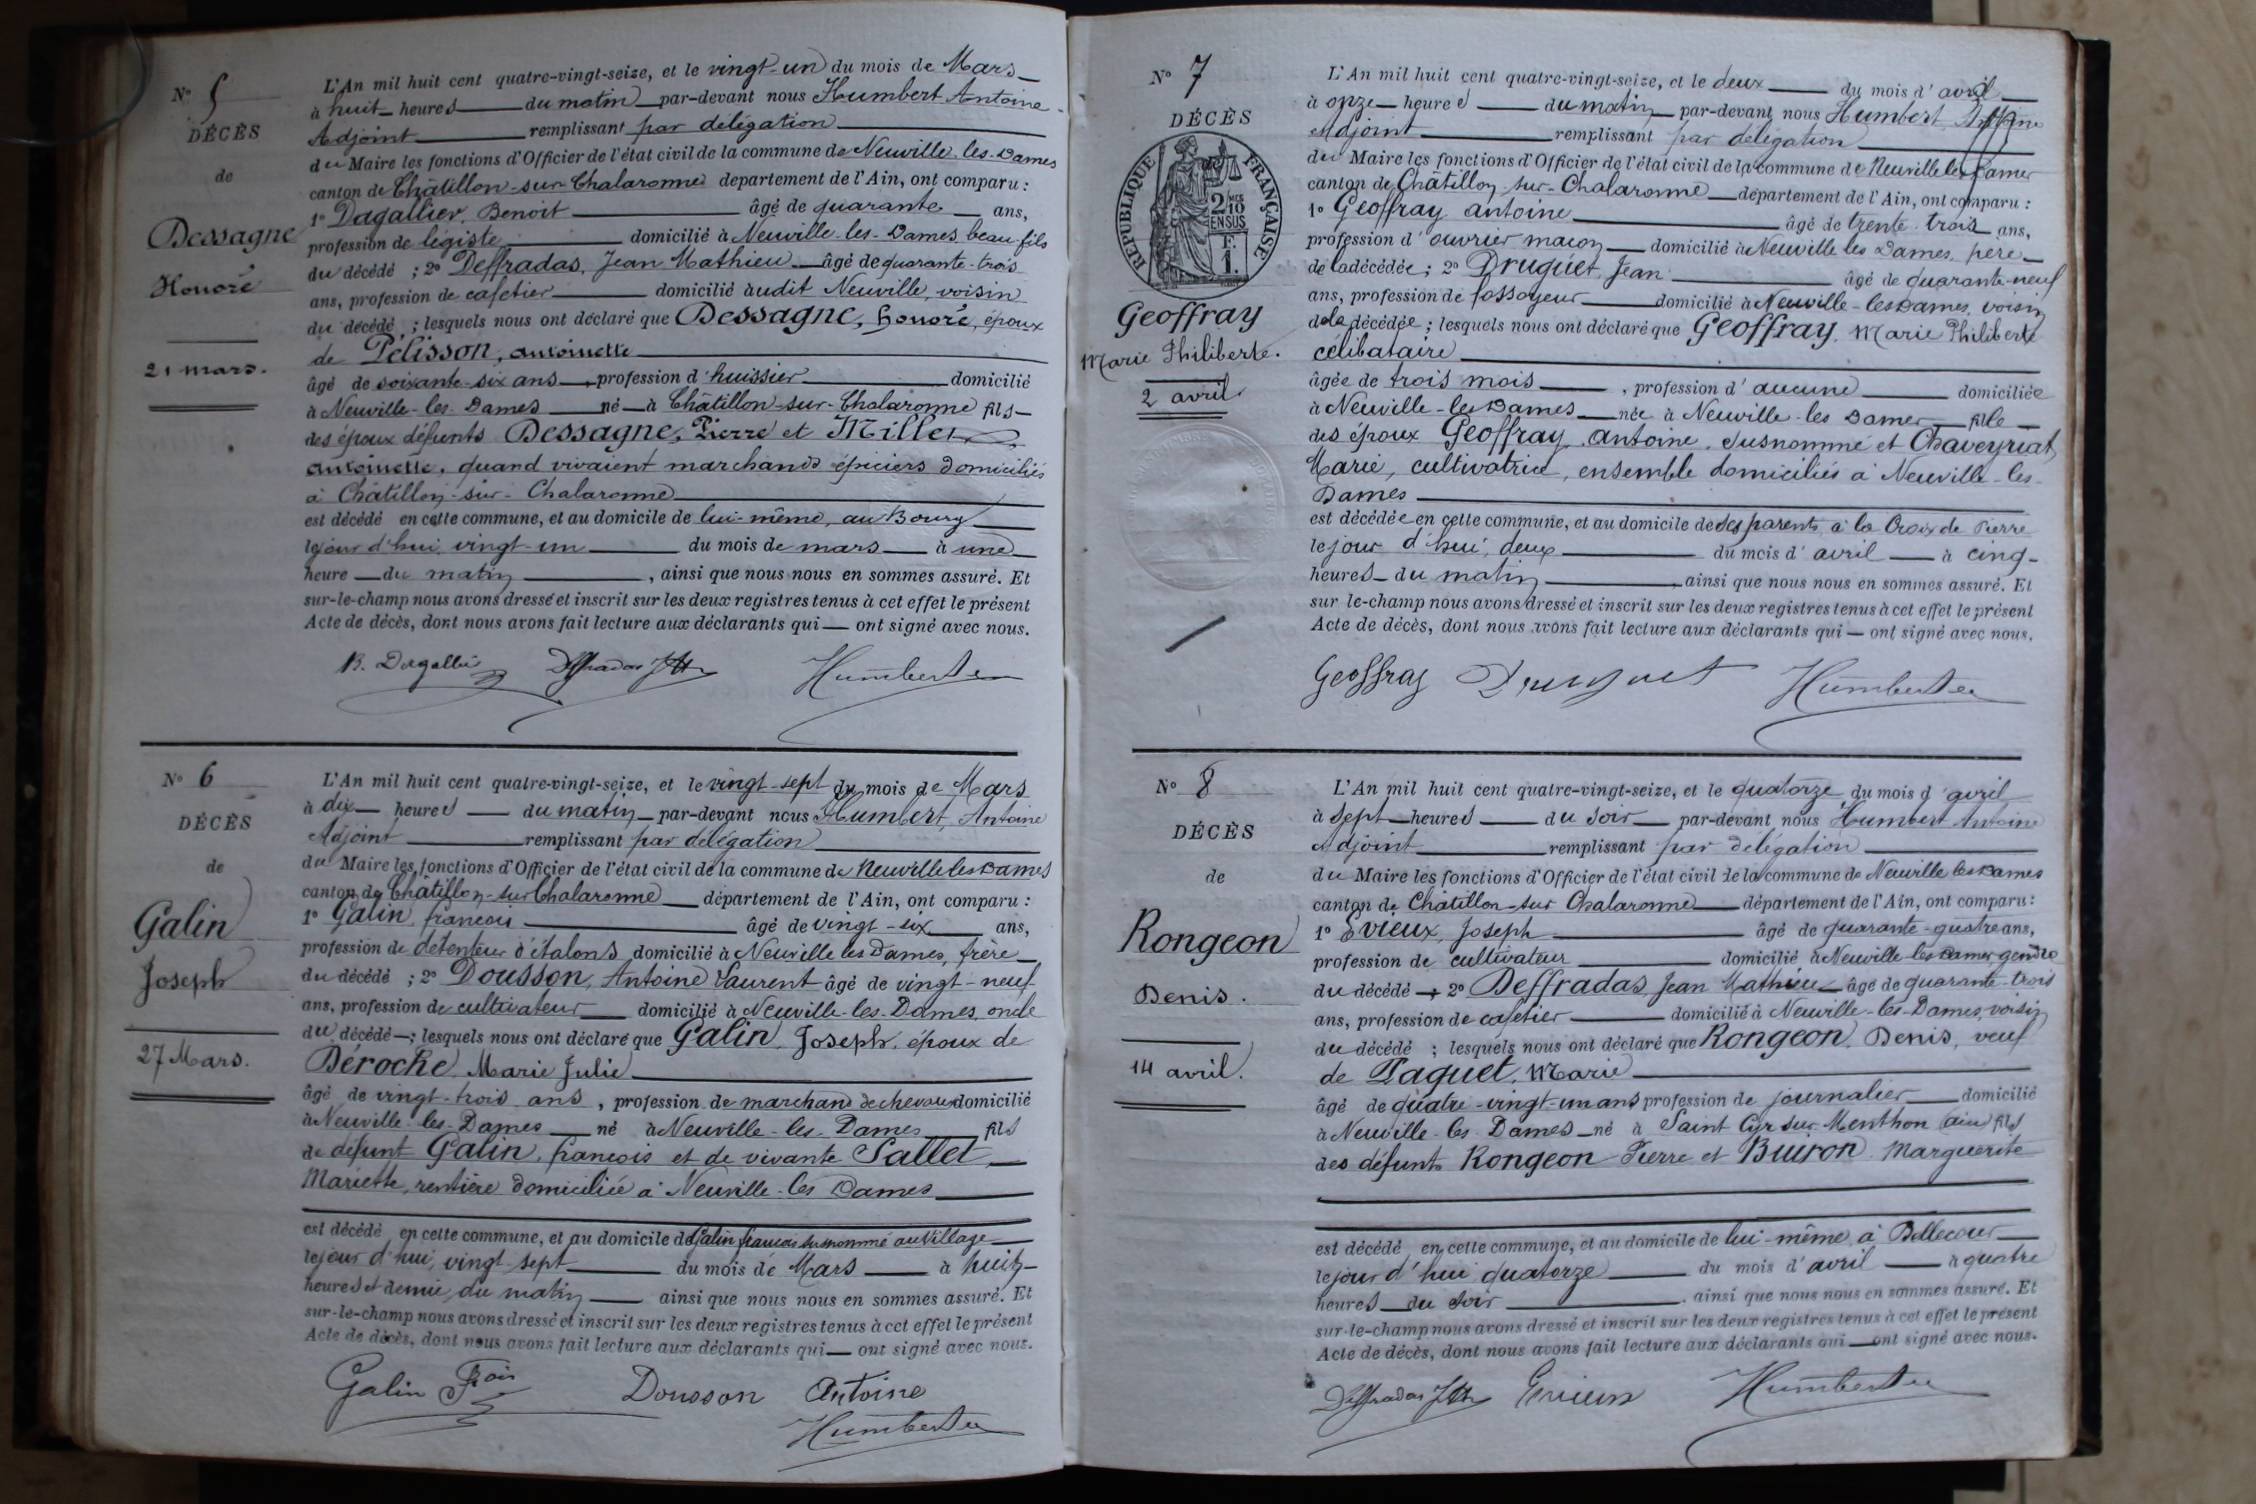 N° 5
DÉCÈS
de
Dessagne
Honoré
21 mars.
L'An mil huit cent quatre-vingt-seize, et le vingt-un du mois de Mars
à huit heures du matin par-devant nous Humbert Antoine
Adjoint remplissant par délégation
du Maire les fonctions d'Officier de l'état civil de la commune de Neuville-les-Dames
canton de Châtillon-sur-Chalaronne département de l'Ain, ont comparu :
1° Dagallier, Benoit âgé de quarante ans,
profession de légiste domicilié à Neuville-les-Dames, beau-fils
du décédé ; 2° Deffradas, Jean Mathieu âgé de quarante-trois
ans, profession de cafetier domicilié audit Neuville, voisin
du décédé ; lesquels nous ont déclaré que Dessagne, honoré, époux
de Pélisson, antoinette
âgé de soixante-six ans, profession d'huissier domicilié
à Neuville-les-Dames né à Châtillon-sur-Chalaronne fils
des époux défunts Dessagne, Pierre et Miller
antoinette, quand vivaient marchands épiciers domiciliés
à Châtillon-sur-Chalaronne
est décédé en cette commune, et au domicile de lui-même, au Bourg
le jour d'hui vingt-un du mois de mars à une
heure du matin, ainsi que nous nous en sommes assuré. Et
sur-le-champ nous avons dressé et inscrit sur les deux registres tenus à cet effet le présent
Acte de décès, dont nous avons fait lecture aux déclarants qui ont signé avec nous.
B. Dagallier Deffradas Humbert
N° 6
DÉCÈS
de
Galin
Joseph
27 Mars.
L'An mil huit cent quatre-vingt-seize, et le vingt-sept du mois de Mars
à dix heures du matin par-devant nous Humbert, Antoine
Adjoint remplissant par délégation
du Maire les fonctions d'Officier de l'état civil de la commune de Neuville les Dames
canton de Châtillon-sur Chalaronne département de l'Ain, ont comparu :
1° Galin, françois âgé de vingt-six ans,
profession de détenteur d'étalons domicilié à Neuville les Dames, frère
du décédé ; 2° Dousson, Antoine Laurent âgé de vingt-neuf
ans, profession de cultivateur domicilié à Neuville-les-Dames, oncle
du décédé ; lesquels nous ont déclaré que Galin, Joseph, époux de
Déroche, Marie Julie
âgé de vingt-trois ans, profession de marchand de chevaux domicilié
à Neuville-les-Dames né à Neuville-les-Dames fils
de défunt Galin, françois et de vivante Sallet
Mariette, rentière domiciliée à Neuville-les Dames
est décédé en cette commune, et au domicile de Galin françois susnommé au Village
le jour d'hui, vingt-sept du mois de Mars à huit
heures et demie, du matin ainsi que nous nous en sommes assuré. Et
sur-le-champ nous avons dressé et inscrit sur les deux registres tenus à cet effet le présent
Acte de décès, dont nous avons fait lecture aux déclarants qui ont signé avec nous.
Galin Fcois Dousson Antoine
Humbert
N° 7
DÉCÈS
RÉPUBLIQUE FRANÇAISE
2 MES
10
EN SUS
F.
1.
Geoffray
Marie Philiberte.
2 avril
L'An mil huit cent quatre-vingt-seize, et le deux du mois d'avril
à onze heures du matin par-devant nous Humbert Antoine
Adjoint remplissant par délégation
du Maire les fonctions d'Officier de l'état civil de la commune de Neuville les Dames
canton de Châtillon-sur-Chalaronne département de l'Ain, ont comparu :
1° Geoffray antoine âgé de trente-trois ans,
profession d'ouvrier maçon domicilié à Neuville les Dames, père
de la décédée ; 2° Druguet, Jean âgé de quarante-neuf
ans, profession de fossoyeur domicilié à Neuville-les Dames, voisin
de la décédée ; lesquels nous ont déclaré que Geoffray, Marie Philiberte
célibataire
âgée de trois mois, profession d'aucune domiciliée
à Neuville-les Dames née à Neuville-les Dames fille
des époux Geoffray, Antoine, susnommé et Chaveyriat
Marie, cultivatrice, ensemble domiciliés à Neuville-les-
Dames
est décédée en cette commune, et au domicile de ses parents, à la Croix de Pierre
le jour d'hui, deux du mois d'avril à cinq
heures du matin, ainsi que nous nous en sommes assuré. Et
sur le-champ nous avons dressé et inscrit sur les deux registres tenus à cet effet le présent
Acte de décès, dont nous avons fait lecture aux déclarants qui ont signé avec nous.
Geoffray Druguet Humbert
N° 8
DÉCÈS
de
Rongeon
Denis.
14 avril.
L'An mil huit cent quatre-vingt-seize, et le quatorze du mois d'avril
à sept heures du soir par-devant nous Humbert Antoine
Adjoint remplissant par délégation
du Maire les fonctions d'Officier de l'état civil de la commune de Neuville les Dames
canton de Châtillon-sur Chalaronne département de l'Ain, ont comparu :
1° Evieux, Joseph âgé de quarante-quatre ans,
profession de cultivateur domicilié à Neuville-les Dames, gendre
du décédé ; 2° Deffradas, Jean Mathieu âgé de quarante-trois
ans, profession de cafetier domicilié à Neuville-les-Dames, voisin
du décédé ; lesquels nous ont déclaré que Rongeon, Denis, veuf
de Paquet, Marie
âgé de quatre-vingt-un ans profession de journalier domicilié
à Neuville-les-Dames né à Saint Cyr sur Menthon ain fils
des défunts Rongeon Pierre et Buiron Marguerite
est décédé en cette commune, et au domicile de lui-même, à Bellecour
le jour d'hui quatorze du mois d'avril à quatre
heures du soir, ainsi que nous nous en sommes assuré. Et
sur-le-champ nous avons dressé et inscrit sur les deux registres tenus à cet effet le présent
Acte de décès, dont nous avons fait lecture aux déclarants qui ont signé avec nous.
Deffradas Evieux Humbert